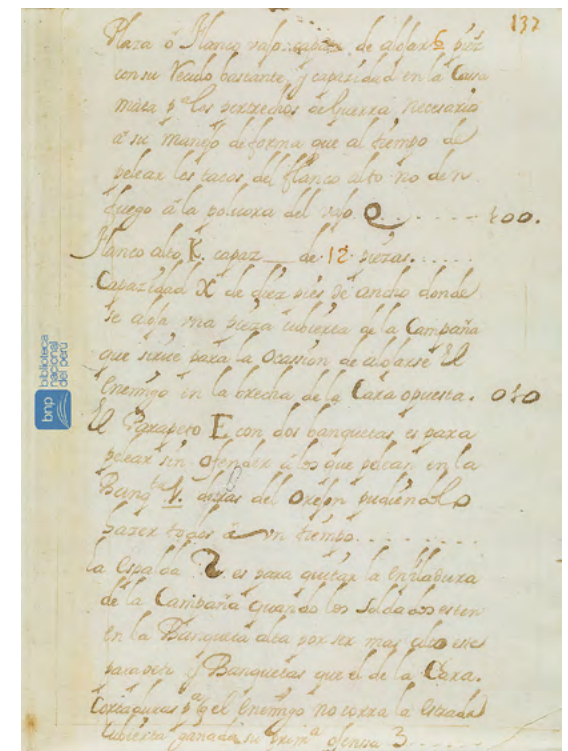 137
Plaza ó Flanco vajo capaz de alojar 6 piez
con su Recudo bastante, y capazidad en la Casa
mata pa los pertrechos de Guerra necesario
a su manejo de forma que al tiempo de
pelear los tacos del flanco alto no den
fuego á la poluora del vajo. Q . . . . . . . 400.
Flanco alto K. capaz de 12 piezas. . . . . .
Capazidad X de diez pies de ancho donde
se aloja vna pieza cubierta de la Campaña
que sirue para la Ocassion de alojarse El
Enemigo en la brecha de la Cara opuesta. 040
El Parapeto E con dos banquetas es para
pelear sin ofender a los que pelean en la
Banqta V. detras del Orejon pudiendolo
hazer todos á vn tiempo. . . . . . . . .
La Espalda es para quitar la Enfiladura
de la Campaña quando los Soldados esten
en la Banqueta alta por ser mas alto este
parapeto y Banquetas que el de la Cara.
Cortaduras pa q el Enemigo no corra la Estrada
Cubierta ganada su prima ofensa 3
bnp biblioteca
nacional
del perú